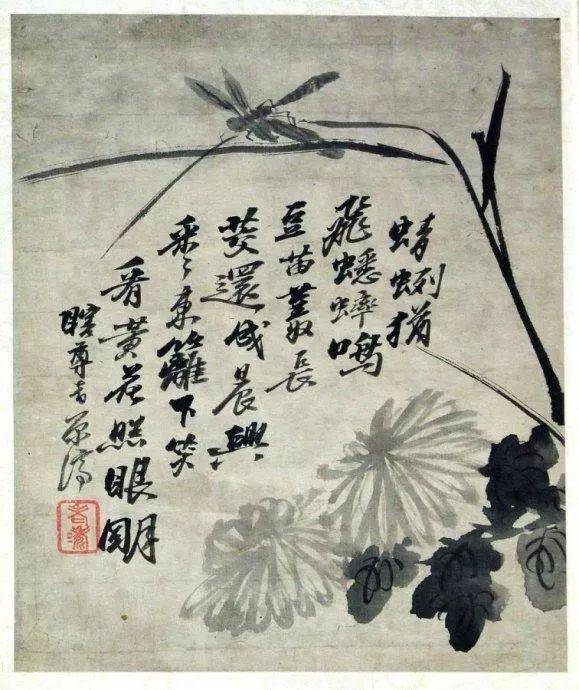 蜻蛚猶
飛蟋蟀鳴
豆苗叢長
還成晨興
采〻東籬下笑
看黃花照眼明
瞎尊者原濟
老濤